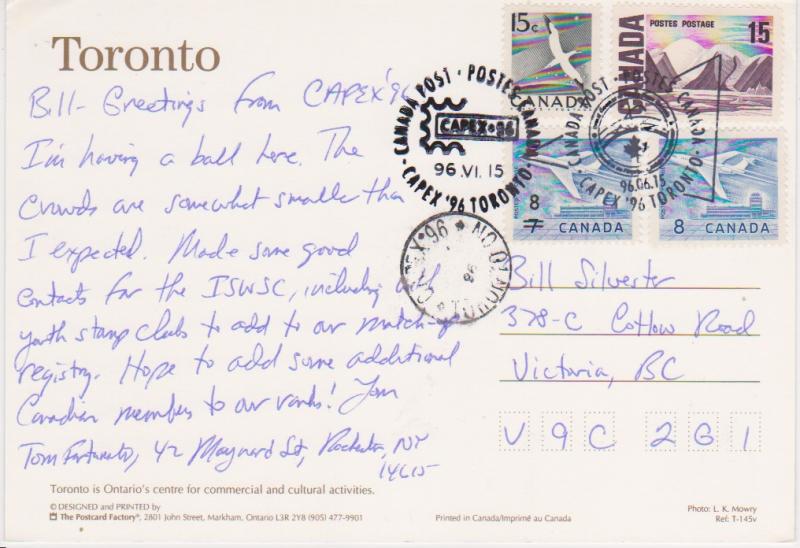 Toronto
Bill - Greetings from CAPEX '96
I'm having a ball here. The
crowds are somewhat smaller than
I expected. Made some good
contacts for the ISWSC, including
youth stamp clubs to add to our match-up
registry. Hope to add some additional
Canadian members to our ranks! Your
Tom Fortunato, 42 Maynard St, Rochester, NY
14615
Toronto is Ontario's centre for commercial and cultural activities.
© DESIGNED and PRINTED by
The Postcard Factory®, 2801 John Street, Markham, Ontario L3R 2Y8 (905) 477-9901
Printed in Canada/Imprimé au Canada
Photo: L. K. Mowry
Ref: T-145v
15c
CANADA
POSTES POSTAGE
15
CANADA
8
7
CANADA
8 CANADA
CANADA POST · POSTES CANADA
CAPEX·96
96.VI.15
CAPEX '96 TORONTO
CANADA POST · POSTES CANADA
96.06.15
CAPEX '96 TORONTO
CAPEX '96
TORONTO ON
Bill Silvester
378-C Cotlow Road
Victoria, BC
V9C 2G1